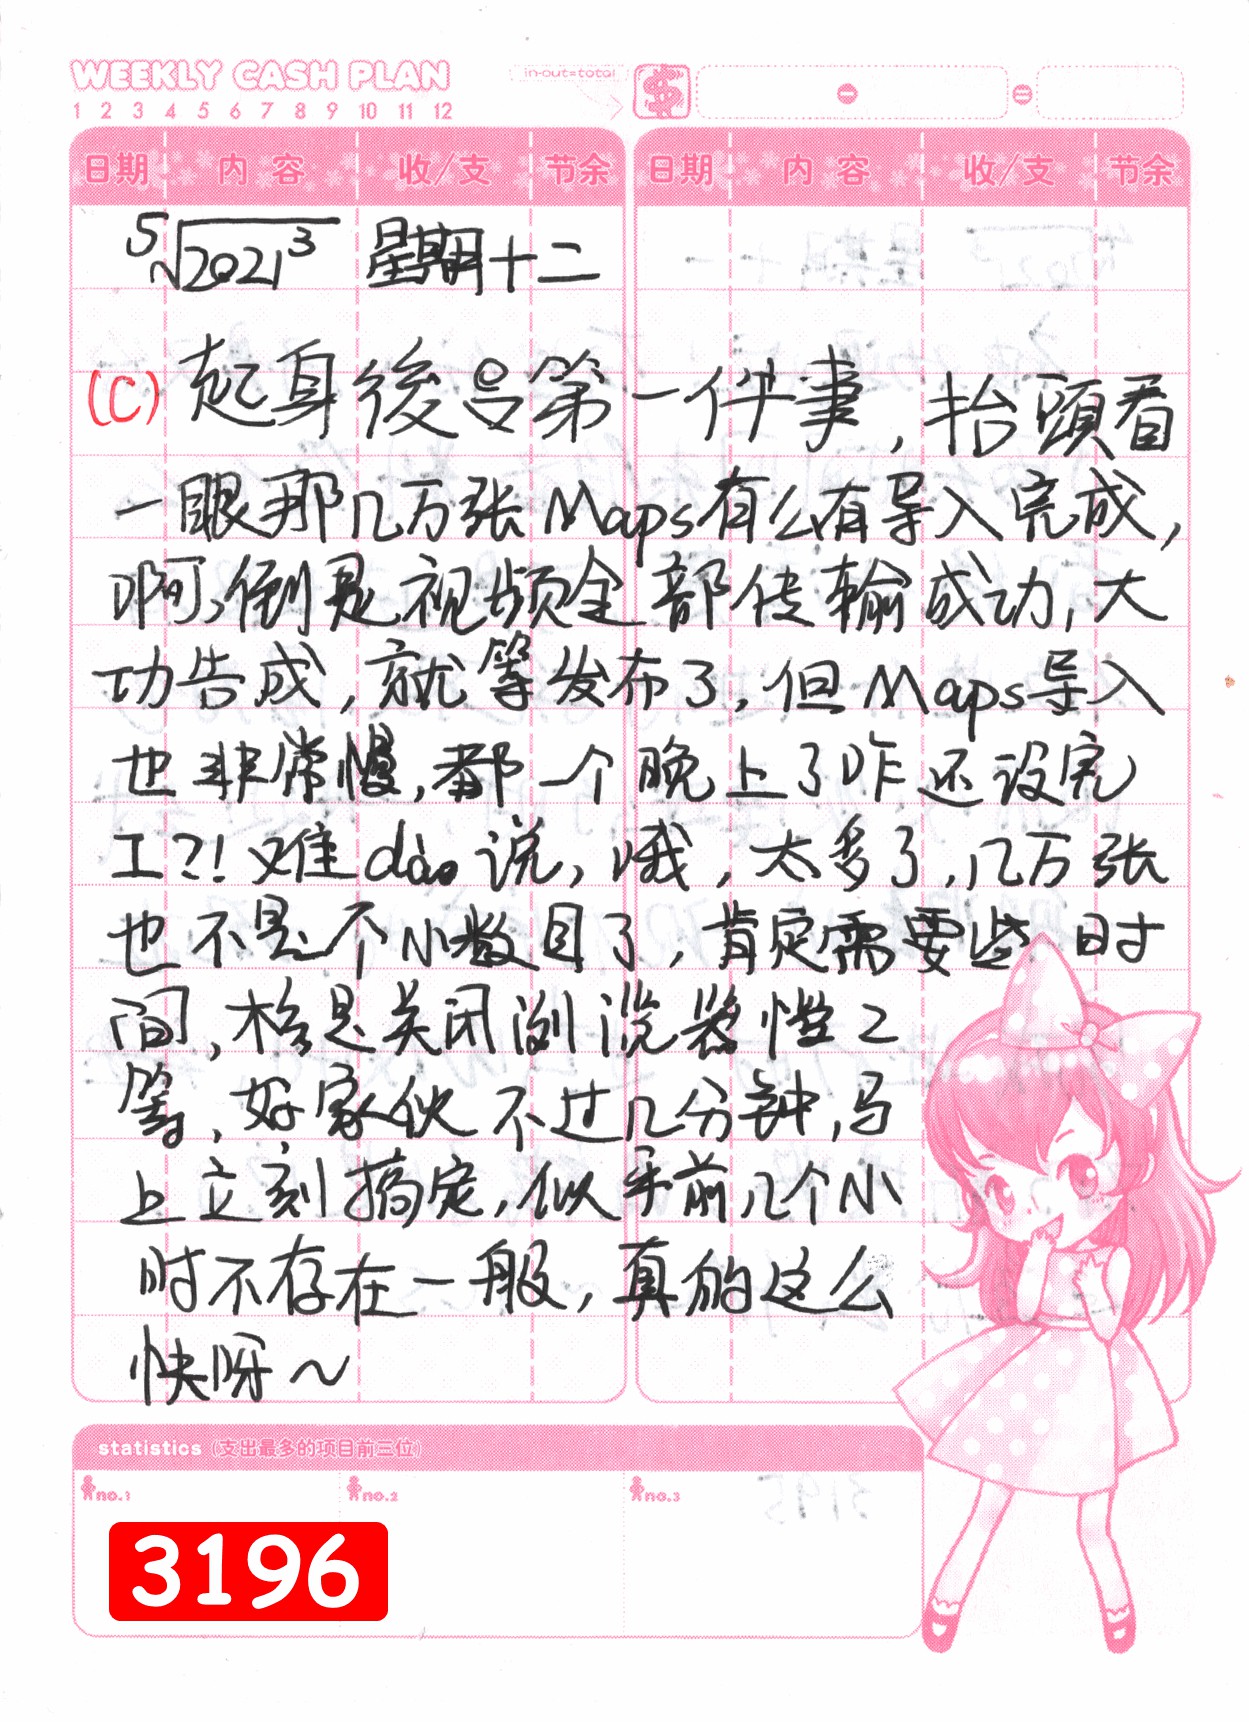 WEEKLY CASH PLAN
1 2 3 4 5 6 7 8 9 10 11 12
in-out=total
日期 内容 收/支 节余 日期 内容 收/支 节余
⁵√2021³ 星期十二
(C) 起身後㕣第一件事,抬頭看
一眼那几万张Maps有么有导入完成,
啊,倒是视频全部传输成功,大
功告成,就等发布了,但Maps导入
也非常慢,都一个晚上了咋还没完
工?!难dào说,哦,太多了,几万张
也不是个小数目了,肯定需要些时
间,于是关闭浏览器慢2
等,好家伙不过几分钟,马
上立刻搞定,似乎前几个小
时不存在一般,真的这么
快呀~
statistics (支出最多的项目前三位)
no.1 no.2 no.3
3196